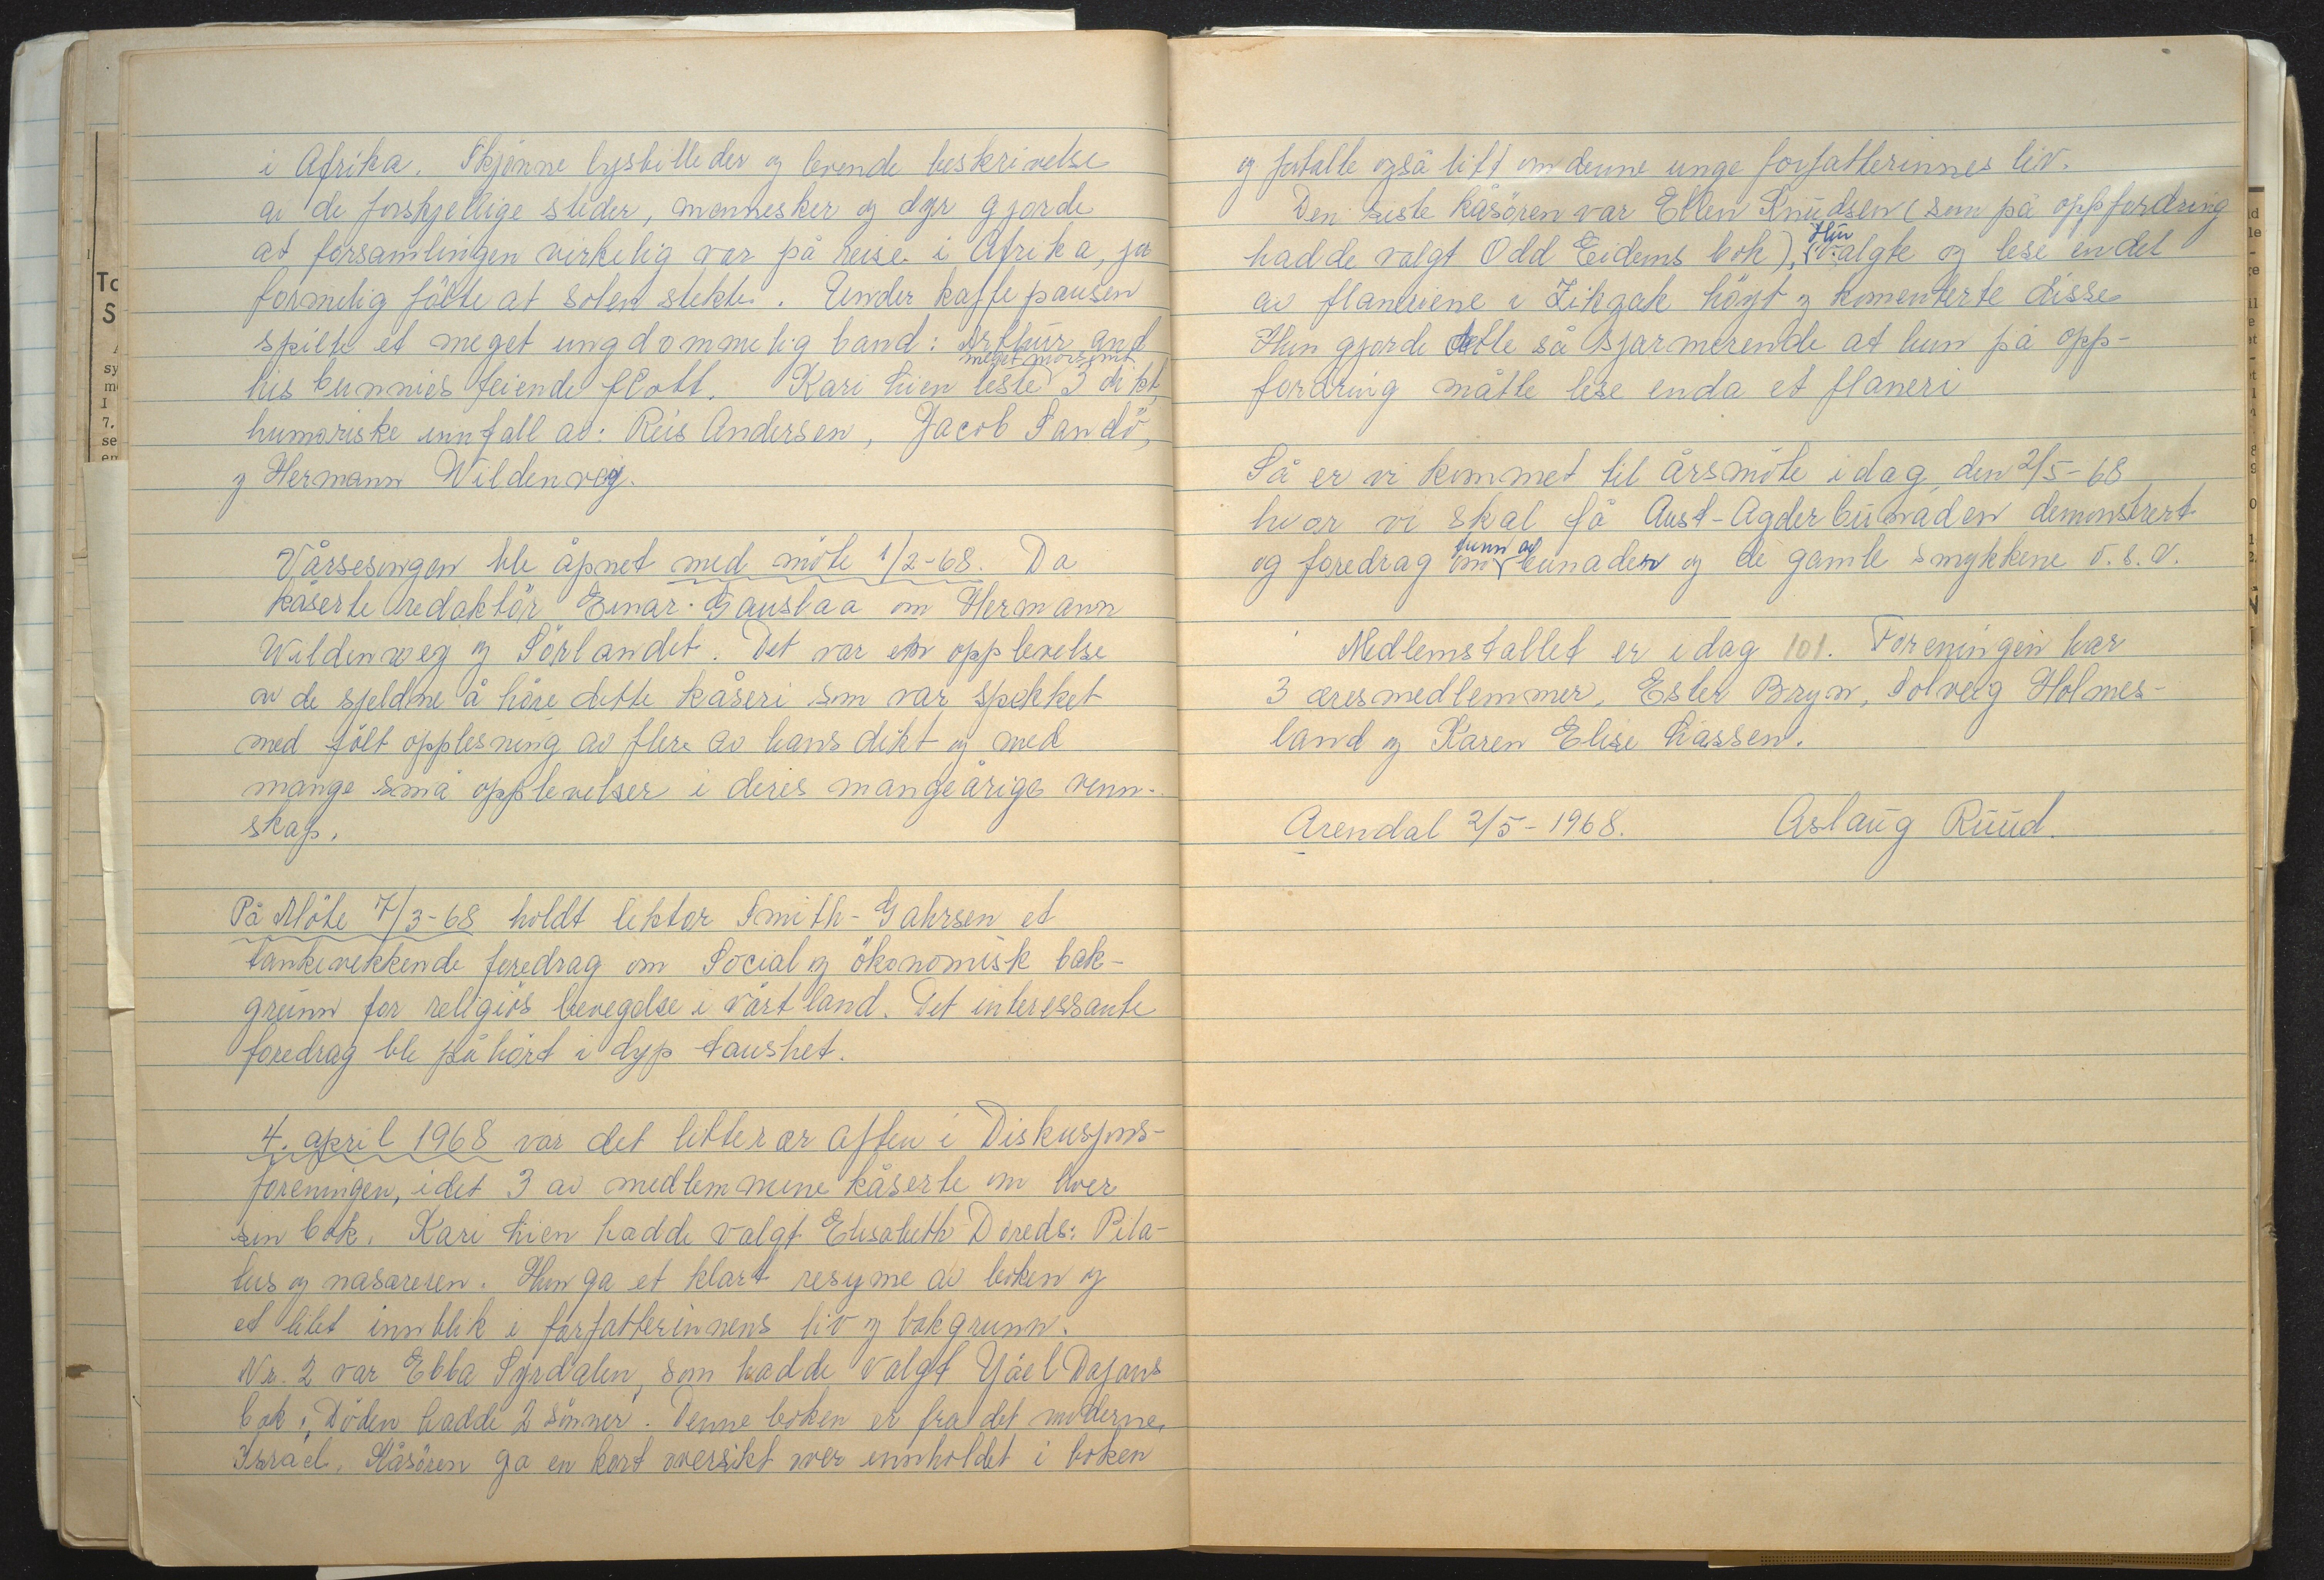 i Afrika. Skjönne lysbilleder og levende beskrivelse
av de forskjellige steder, mennesker og dyr gjorde
at forsamlingen virkelig var på reise i Afrika, ja
formelig fölte at solen stekte. Under kaffepausen
spilte et meget ungdommelig band: Arthur and
his bunnies feiende flott. Kari Lien leste meget morsomt 3 dikt,
humoriske innfall av: Reis Andersen, Jacob Sandö,
og Hermann Wildenvey.
Vårsesongen ble åpnet med möte 1/2-68. Da
kåserte redaktör Einar Gauslaa om Hermann
Wildenwey og Sörlandet. Det var en opplevelse
av de sjeldne å höre dette kåseri som var spekket
med fölt opplesning av flere av hans dikt og med
mange små opplevelser i deres mangeårige venn-
skap.
På Möte 7/3-68 holdt lektor Smith-Gahrsen et
tankevekkende foredrag om Social og ökonomisk bak-
grunn for religiös bevegelse i vårt land. Det interessante
foredrag ble påhört i dyp taushet.
4. april 1968 var det litterær aften i Diskusjons-
foreningen, idet 3 av medlemmene kåserte om hver
sin bok. Kari Lien hadde valgt Elisabeth Döreds: Pila-
tus og nasareren. Hun ga et klart resyme av boken og
et litet innblik i forfatterinnens liv og bakgrunn.
Nr. 2 var Ebba Syrdalen, som hadde valgt Yäel Dajans
bok: "Döden hadde 2 sönner". Denne boken er fra det moderne
Israel. Kåsören ga en kort oversikt over innholdet i boken
og fortalte også litt om denne unge forfatterinnes liv.
Den siste kåsören var Ellen Knudsen (som på oppfordring
hadde valgt Odd Eidems bok), Hun valgte og lese endel
av flaneriene i Zikzak höyt og komenterte disse
Hun gjorde dette så sjarmerende at hun på opp-
fordring måtte lese enda et flaneri
Så er vi kommet til årsmöte idag, den 2/5-68
hvor vi skal få Aust-Agderbunaden demonstrert
og foredrag om funn av bunaden og de gamle smykkene o.s.v.
Medlemstallet er idag 101. Foreningen har
3 æresmedlemmer, Ester Bryn, Solveig Holmes-
land og Karen Elise Lassen.
Arendal 2/5-1968. Aslaug Ruud.